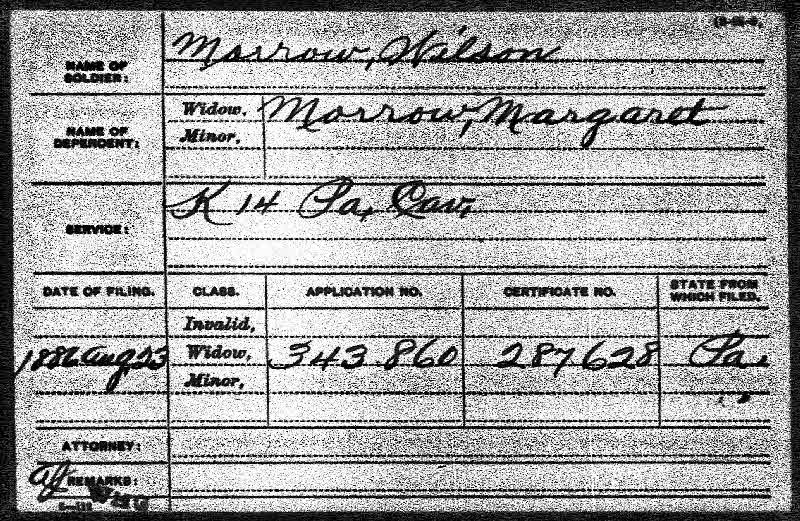 NAME OF SOLDIER: Morrow, Wilson
NAME OF DEPENDENT: Widow, Morrow, Margaret
Minor,
SERVICE: K 14 Pa. Cav.
DATE OF FILING. CLASS. APPLICATION NO. CERTIFICATE NO. STATE FROM WHICH FILED.
Invalid,
1886 Aug 23 Widow, 343.860 287628 Pa.
Minor,
ATTORNEY:
REMARKS: